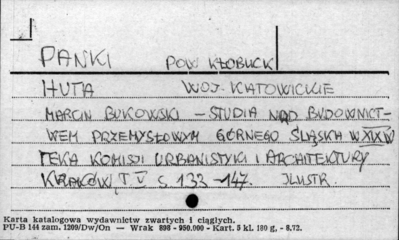 PANKI POW KŁOBUCK
HUTA WOJ. KATOWICKIE
MARCIN BUKOWSKI – STUDIA NAD BUDOWNICT-
WEM PRZEMYSŁOWYM GÓRNEGO ŚLĄSKA W XIX W
TEKA KOMISJI URBANISTYKI I ARCHITEKTURY
KRAKÓW, T V S. 133 – 147. ILUSTR.
Karta katalogowa wydawnictw zwartych i ciągłych.
PU-B 144 zam. 1209/Dw/On — Wrak 898 - 950.000 - Kart. 5 kl. 180 g, - 8.72.